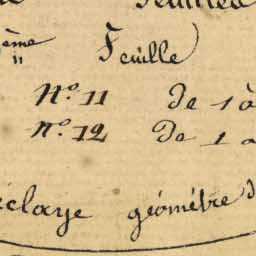 ème Feuille
N.o 11 De 1 à
N.o 12 De 1 a
géomètre